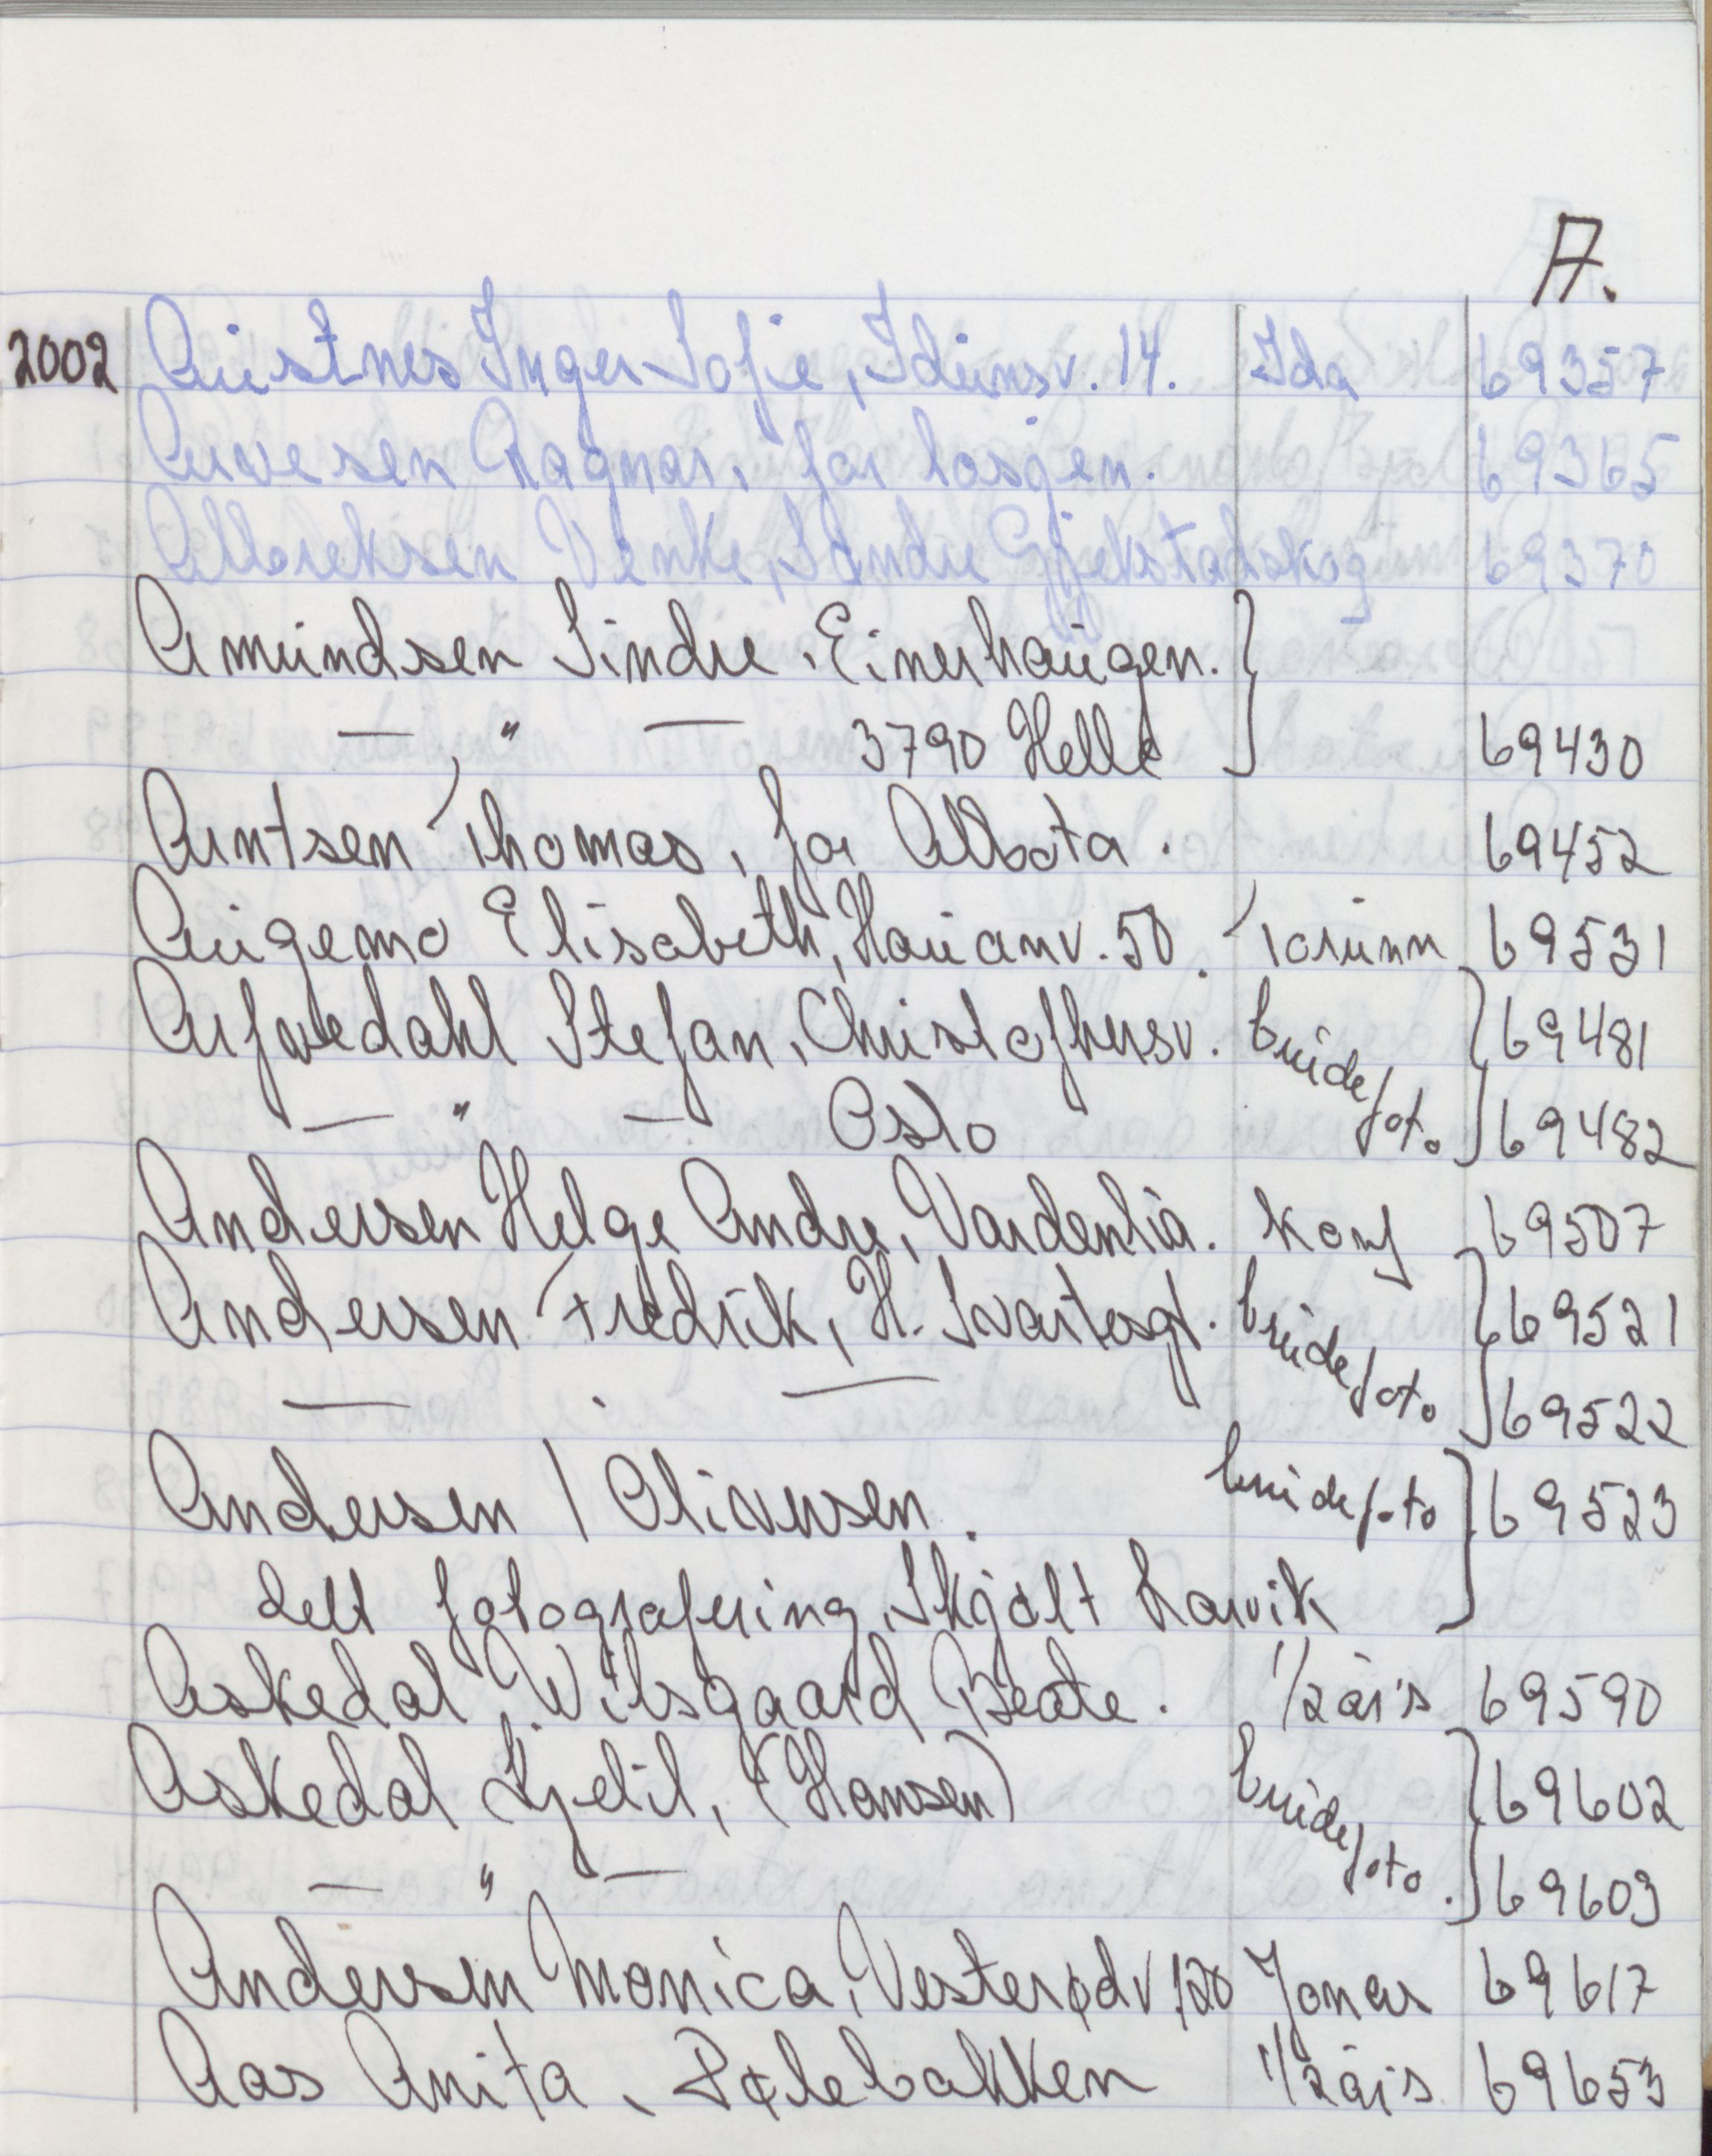 A.
2002 Austnes Inger Sofie, Idunsv. 14. Ida 69357
Arvesen Ragnar, for losjen. 69365
Albreksen Venke, Søndre Gjekstadskog 69370
Amundsen Sindre, Einerhaugen.
— " — 3790 Helle 69430
Arntsen Thomas, for Abbota. 69452
Augemo Elisabeth, Hauanv. 50. Torunn 69531
Arfwedahl Stefan, Christophersv. brude 69481
— " — Oslo foto 69482
Andersen Helge Andre, Vardenlia. konf 69507
Andersen Fredrik, H. Svartasgt. brude 69521
— . — foto 69522
Andersen / Oliversen. brudefoto 69523
delt fotografering, Skjølt Larvik
Askedal, Wilsgaard Beate. 1/2 års 69590
Askedal Kjetil, (Hansen) brude 69602
— " — foto. 69603
Andersen Monica, Vesterødv 120 Jonas 69617
Aas Anita, Pølebakken 1/2 års 69653